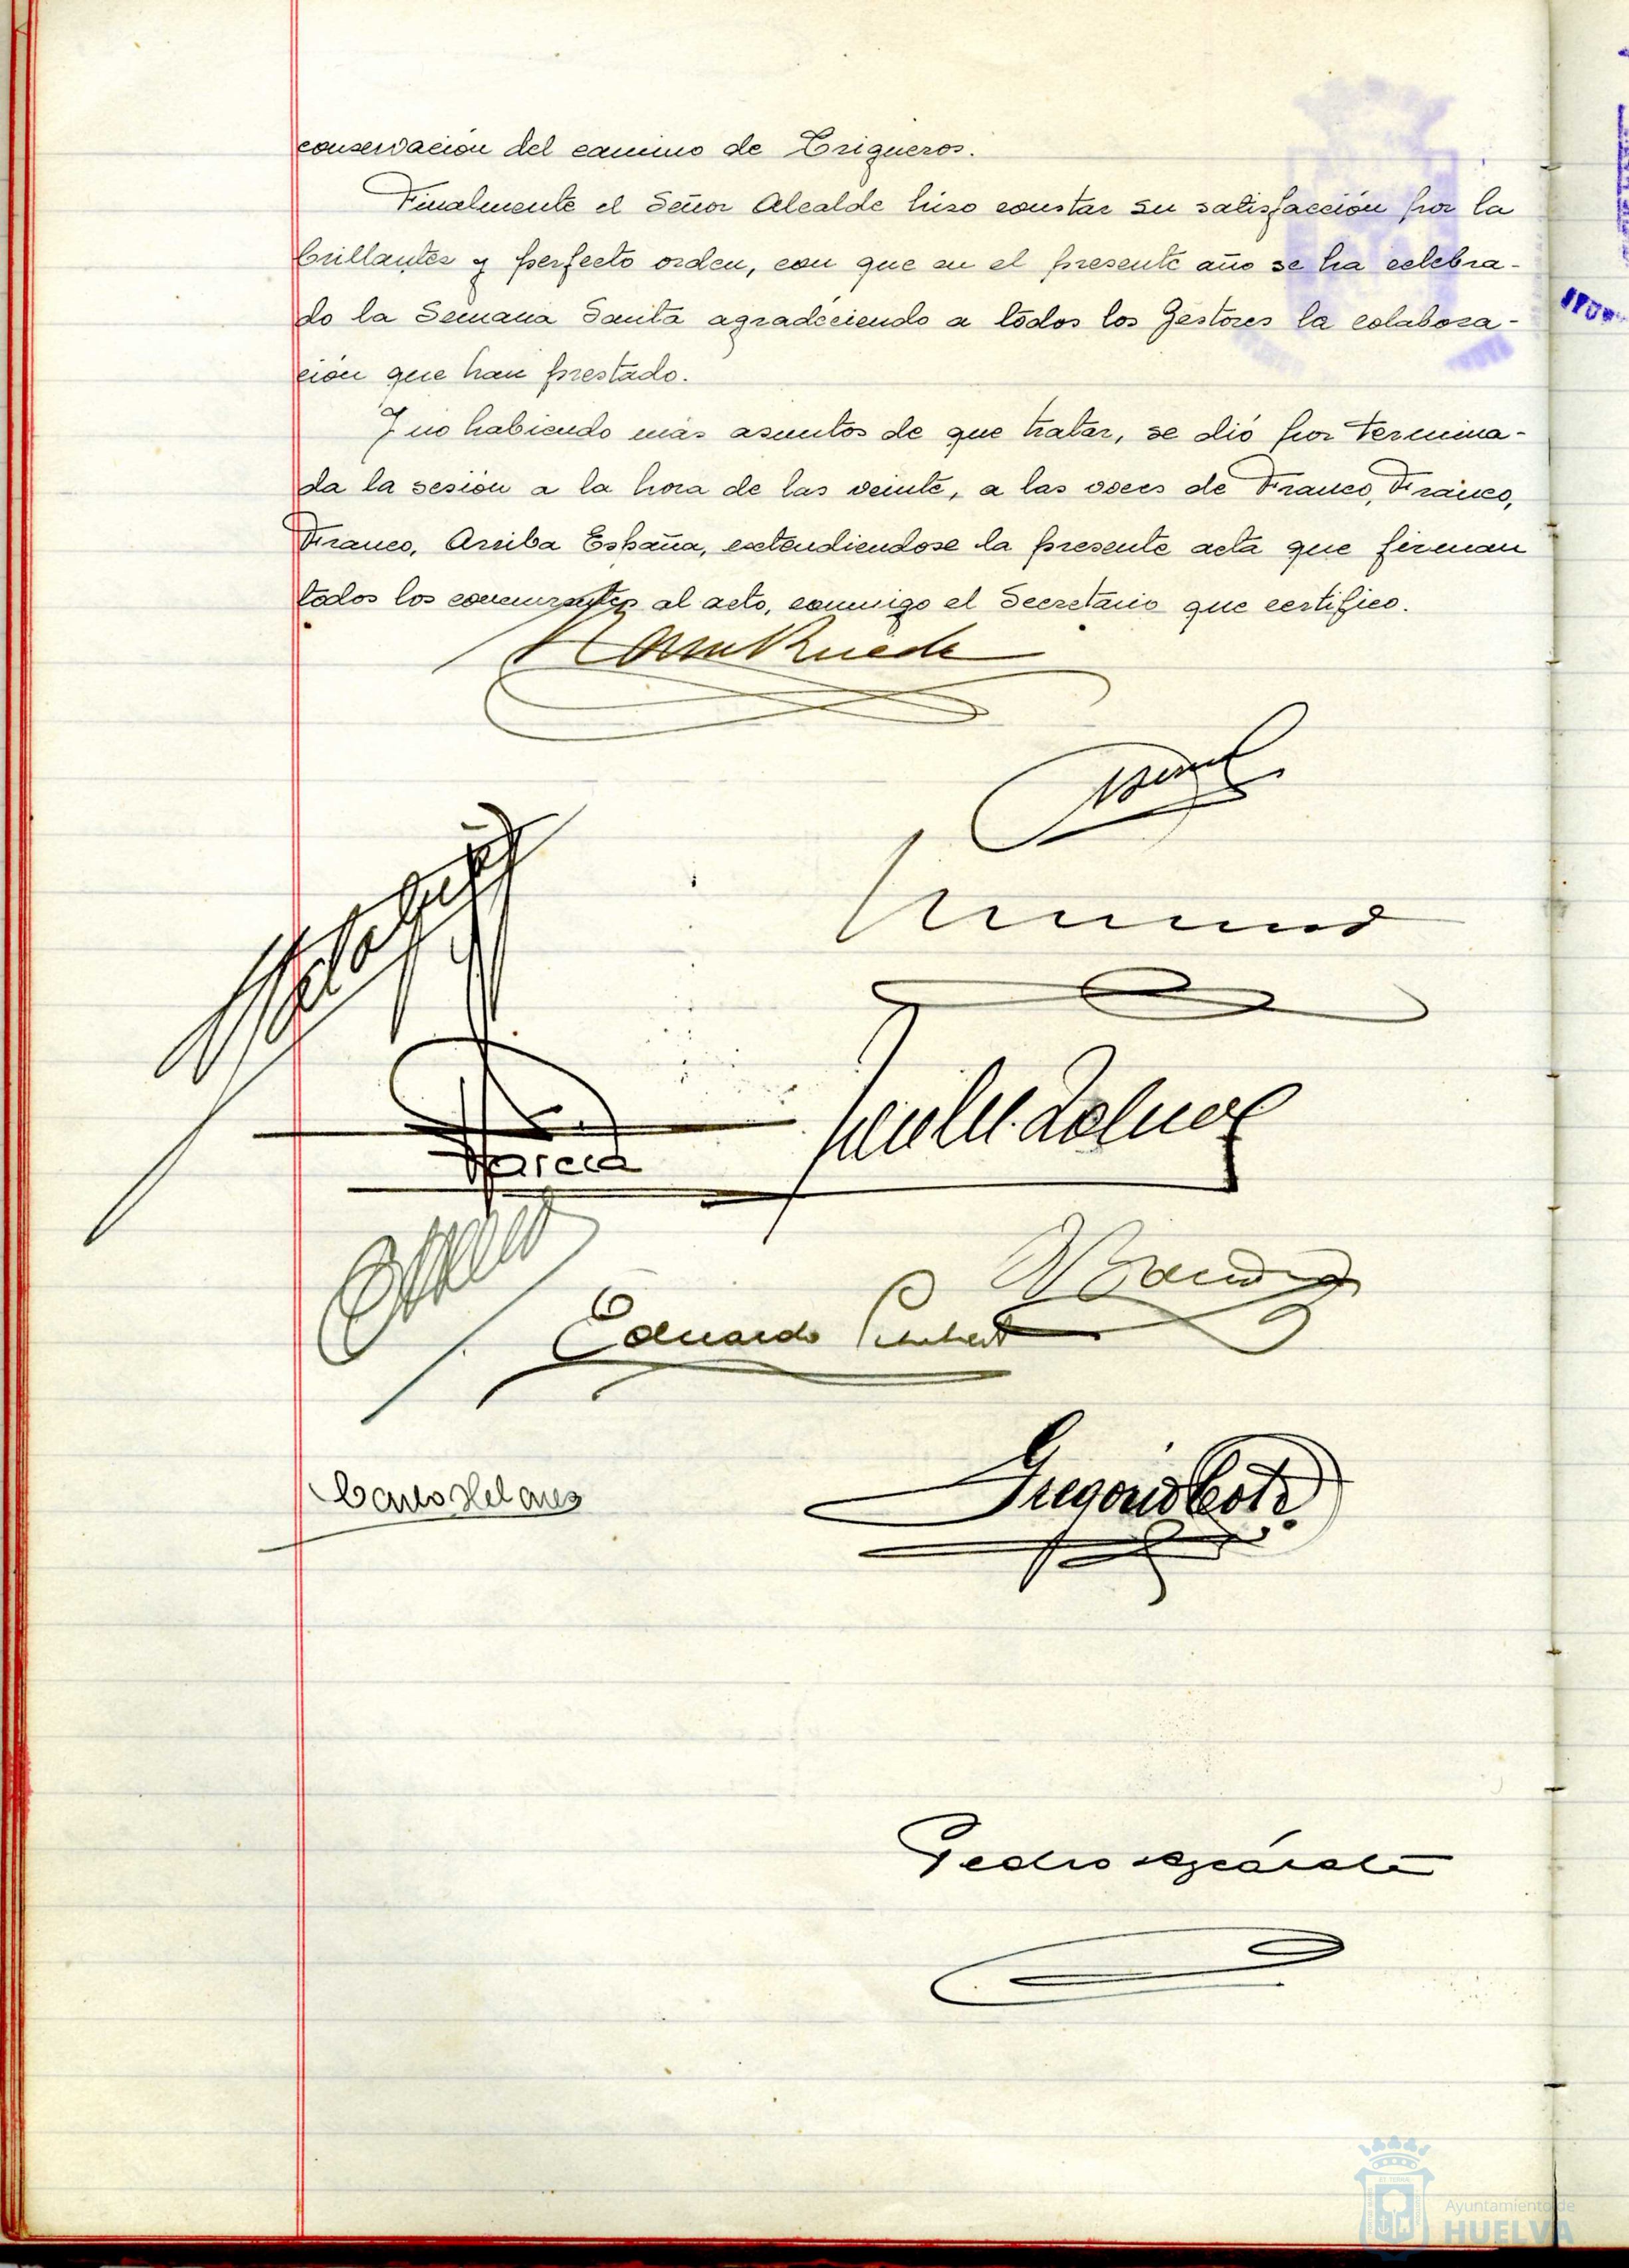 conservación del camino de Trigueros.
Finalmente el Señor Alcalde hizo constar su satisfacción por la
brillantes y perfecto orden, con que en el presente año se ha celebra-
do la Semana Santa agradeciendo a todos los Gestores la colabora-
ción que han prestado.
Y no habiendo más asuntos de que tratar, se dió por termina-
da la sesión a la hora de las veinte, a las voces de Franco, Franco,
Franco, Arriba España, extendiendose la presente acta que firman
todos los concurrentes al acto, conmigo el Secretario que certifico.
García
Eduardo
Gregorio
Pedro
Ayuntamiento de
HUELVA